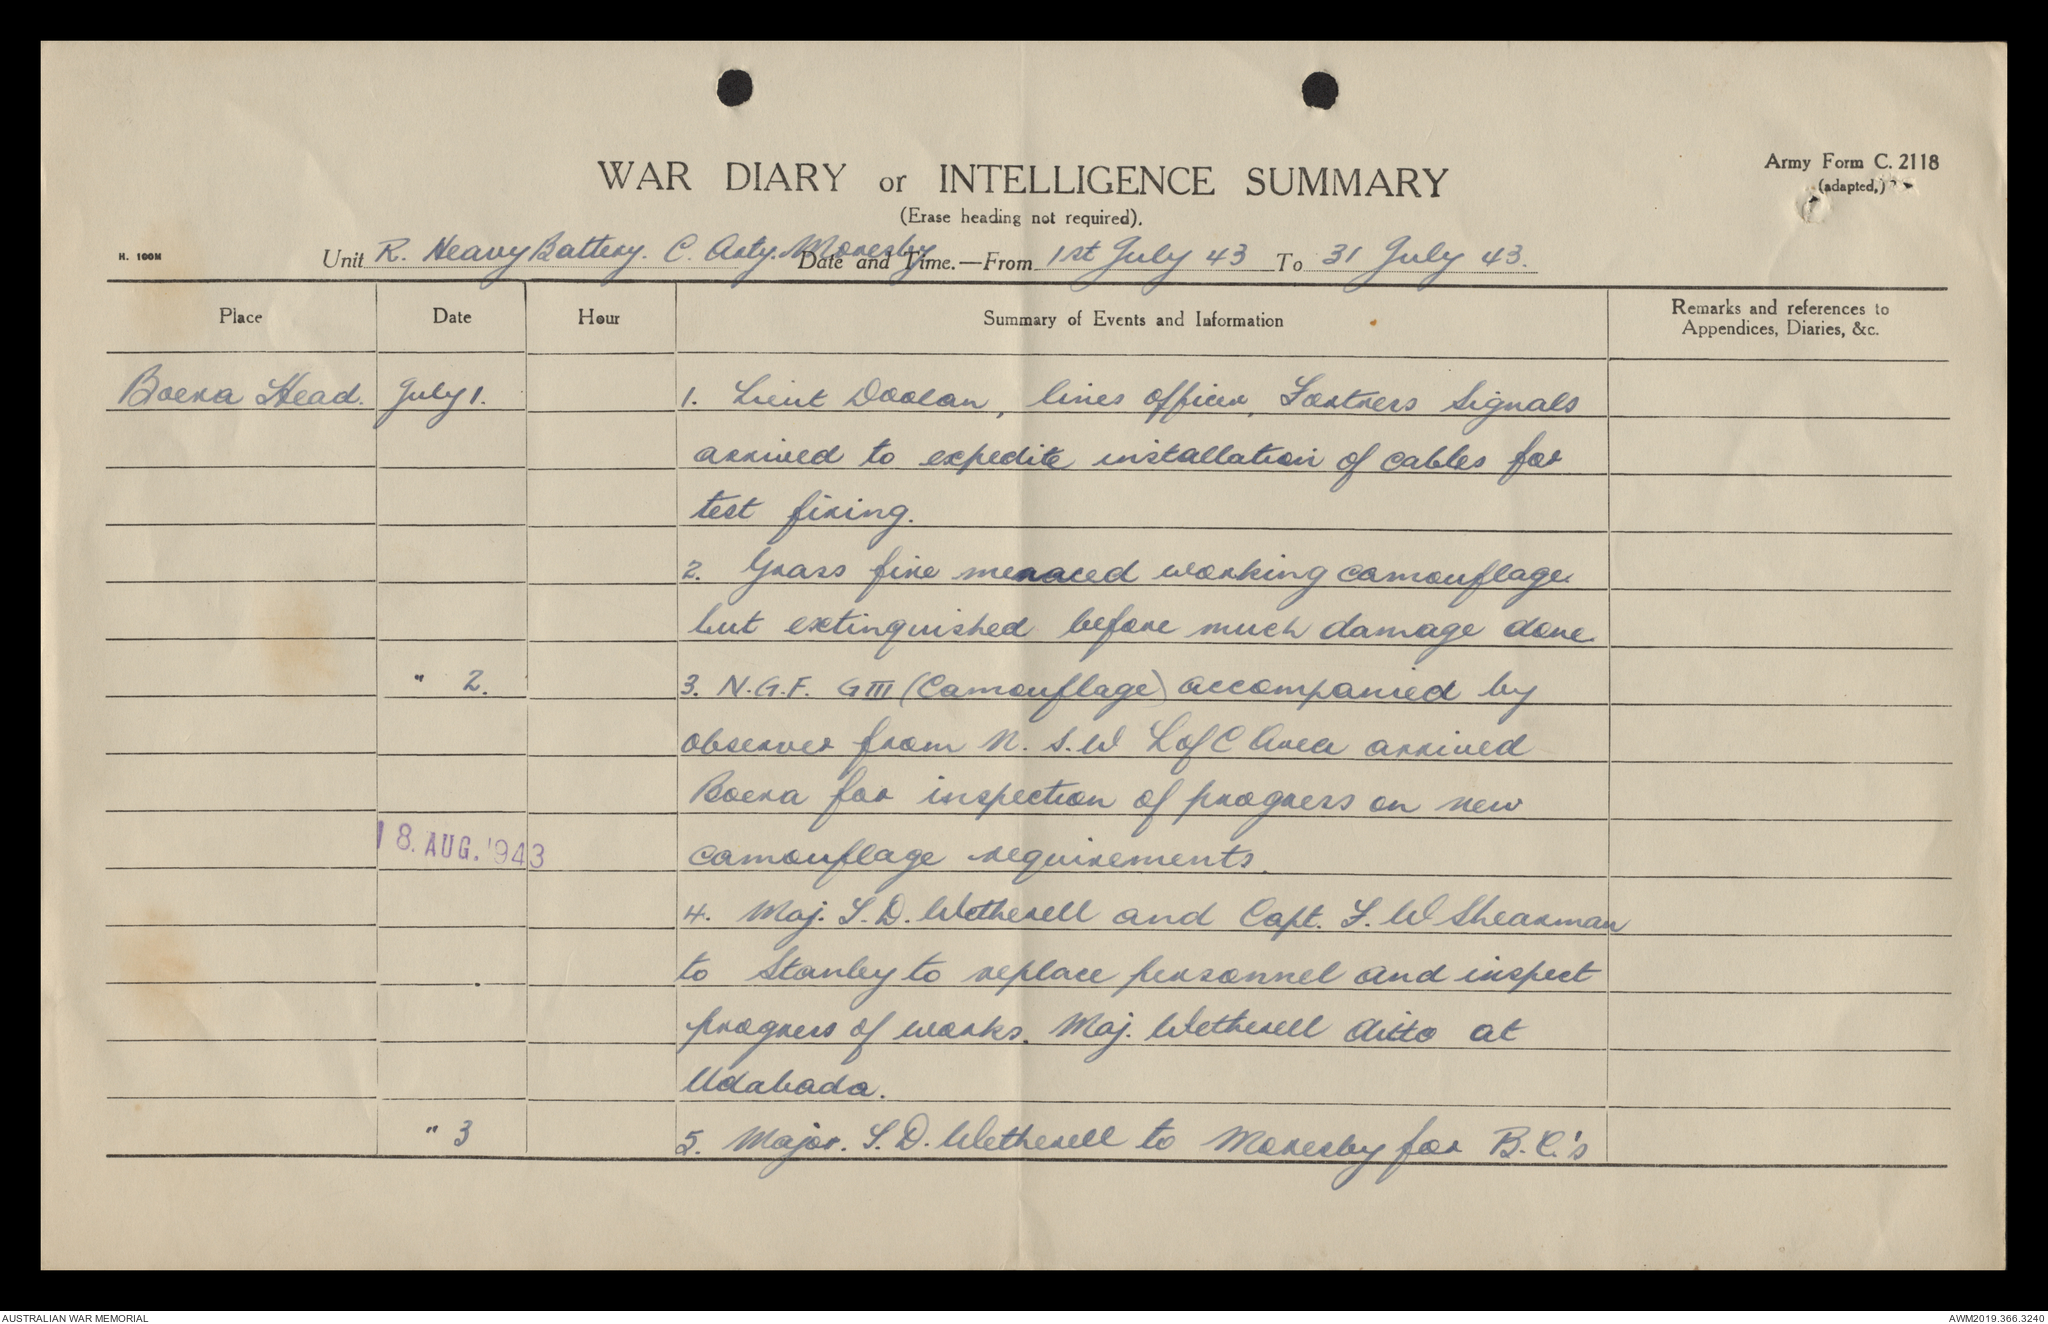 WAR DIARY or INTELLIGENCE SUMMARY
Army Form C. 2118
(adapted,)
(Erase heading not required).
H. 100M
Unit R. Heavy Battery. C. Arty. Moresby Date and Time.—From 1st July 43 To 31 July 43.
Place Date Hour Summary of Events and Information Remarks and references to
Appendices, Diaries, &c.
Boera Head. July 1. 1. Lieut Doolan, lines officer, Fortress Signals
arrived to expedite installation of cables for
test firing.
2. Grass fire menaced working camouflage
but extinguished before much damage done.
" 2. 3. N.G.F. GIII (Camouflage) accompanied by
observer from N.S.W L of C Area arrived
Boera for inspection of progress on new
18 AUG. 1943 camouflage requirements.
4. Maj. S. D. Wetherell and Capt. F. W Shearman
to Stanley to replace personnel and inspect
progress of works. Maj. Wetherell ditto at
Udabada.
" 3 5. Major. S. D. Wetherell to Moresby for B.C.'s
AUSTRALIAN WAR MEMORIAL
AWM2019.366.3240